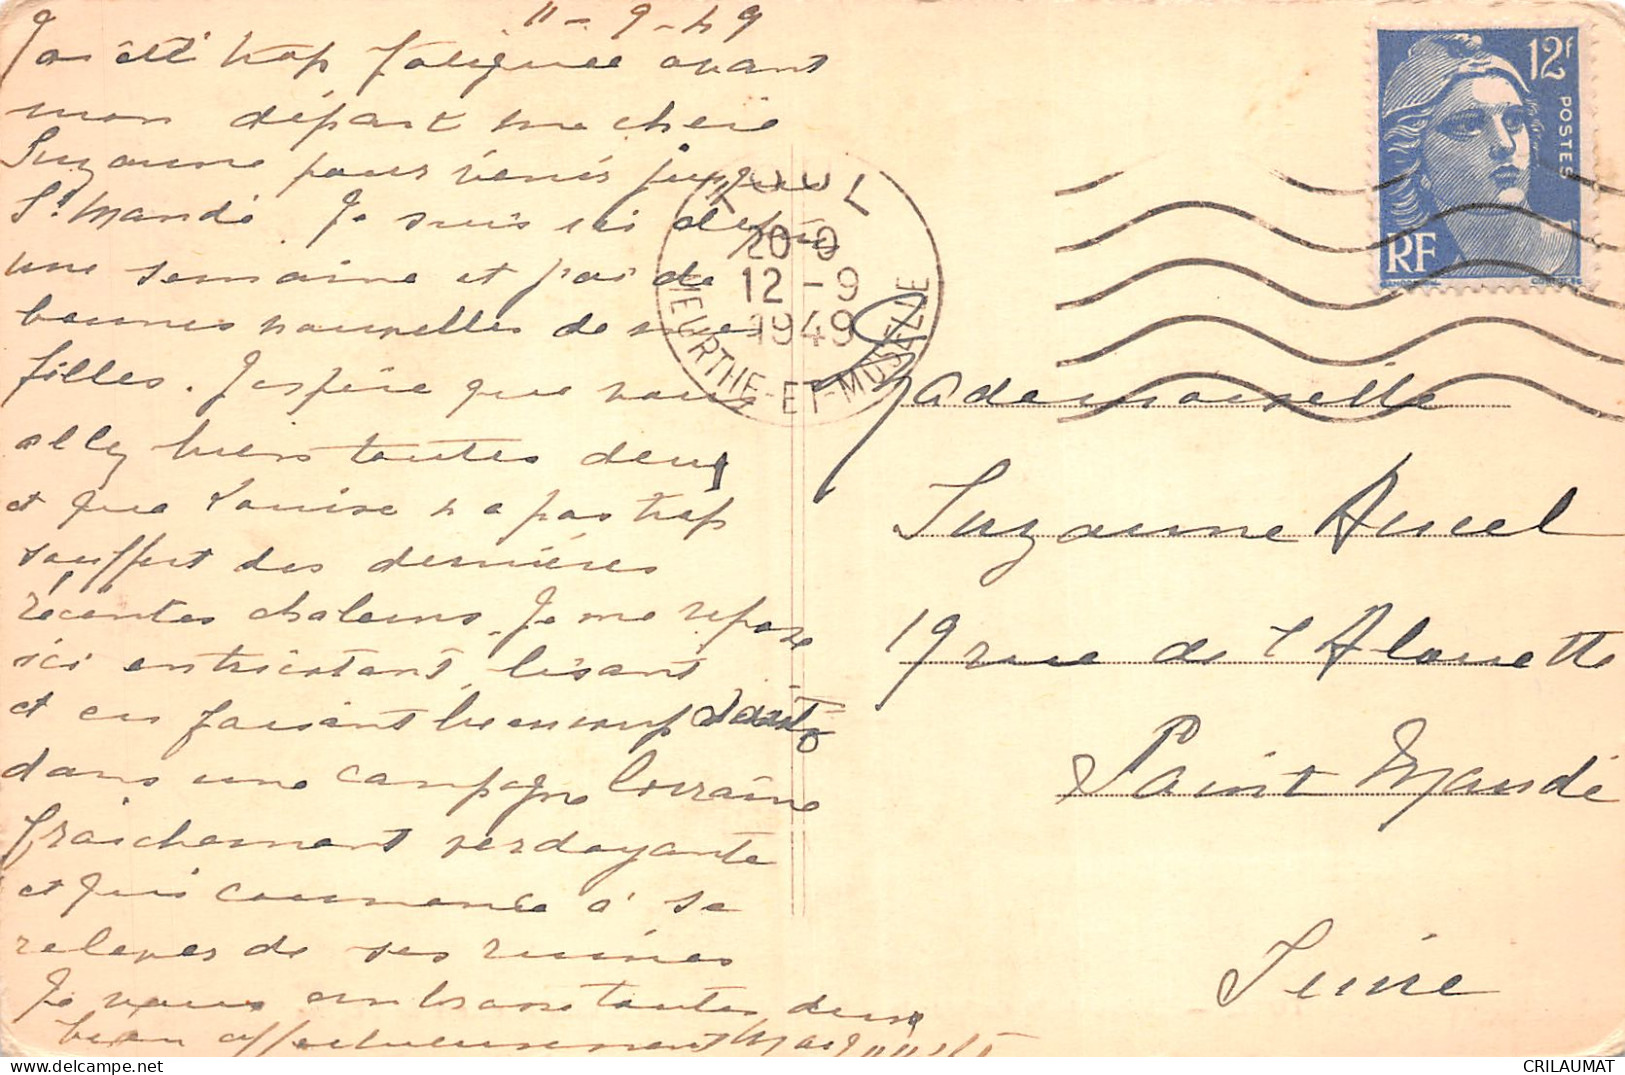 11-9-49
J'ai été trop fatiguée avant
mon départ ma chère
Suzanne pour venir jusque
St Mandé. Je suis ici depuis
une semaine et j'ai de
bonnes nouvelles de mes
filles. J'espère que vous
allez bien toutes deux
et que Louise n'a pas trop
souffert des dernières
récentes chaleurs. Je me repose
ici en tricotant, lisant
et en faisant beaucoup
dans une campagne lorraine
fraichement verdoyante
et qui commence à se
relever de ses ruines
Je vous embrasse toutes deux
bien affectueusement
TOUL
20-0
12-9
1949
MEURTHE-ET-MOSELLE
12F
POSTES
RF
Mademoiselle
Suzanne
19 rue de l'Alouette
Saint Mandé
Seine
delcampe.net
CRILAUMAT